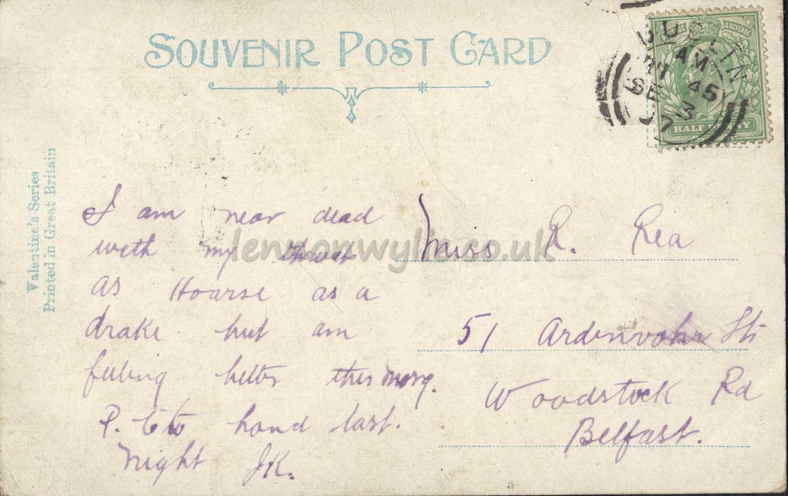 SOUVENIR POST CARD
Valentine's Series
Printed in Great Britain
HALF PENNY
DUBLIN
AM
45
SE 3
07
lennonwylie.co.uk
I am near dead
with my throat
as Hoarse as a
drake but am
feeling better this morng.
P. C to hand last.
night JK.
Miss R. Rea
51 Ardenvohr St
Woodstock Rd
Belfast.